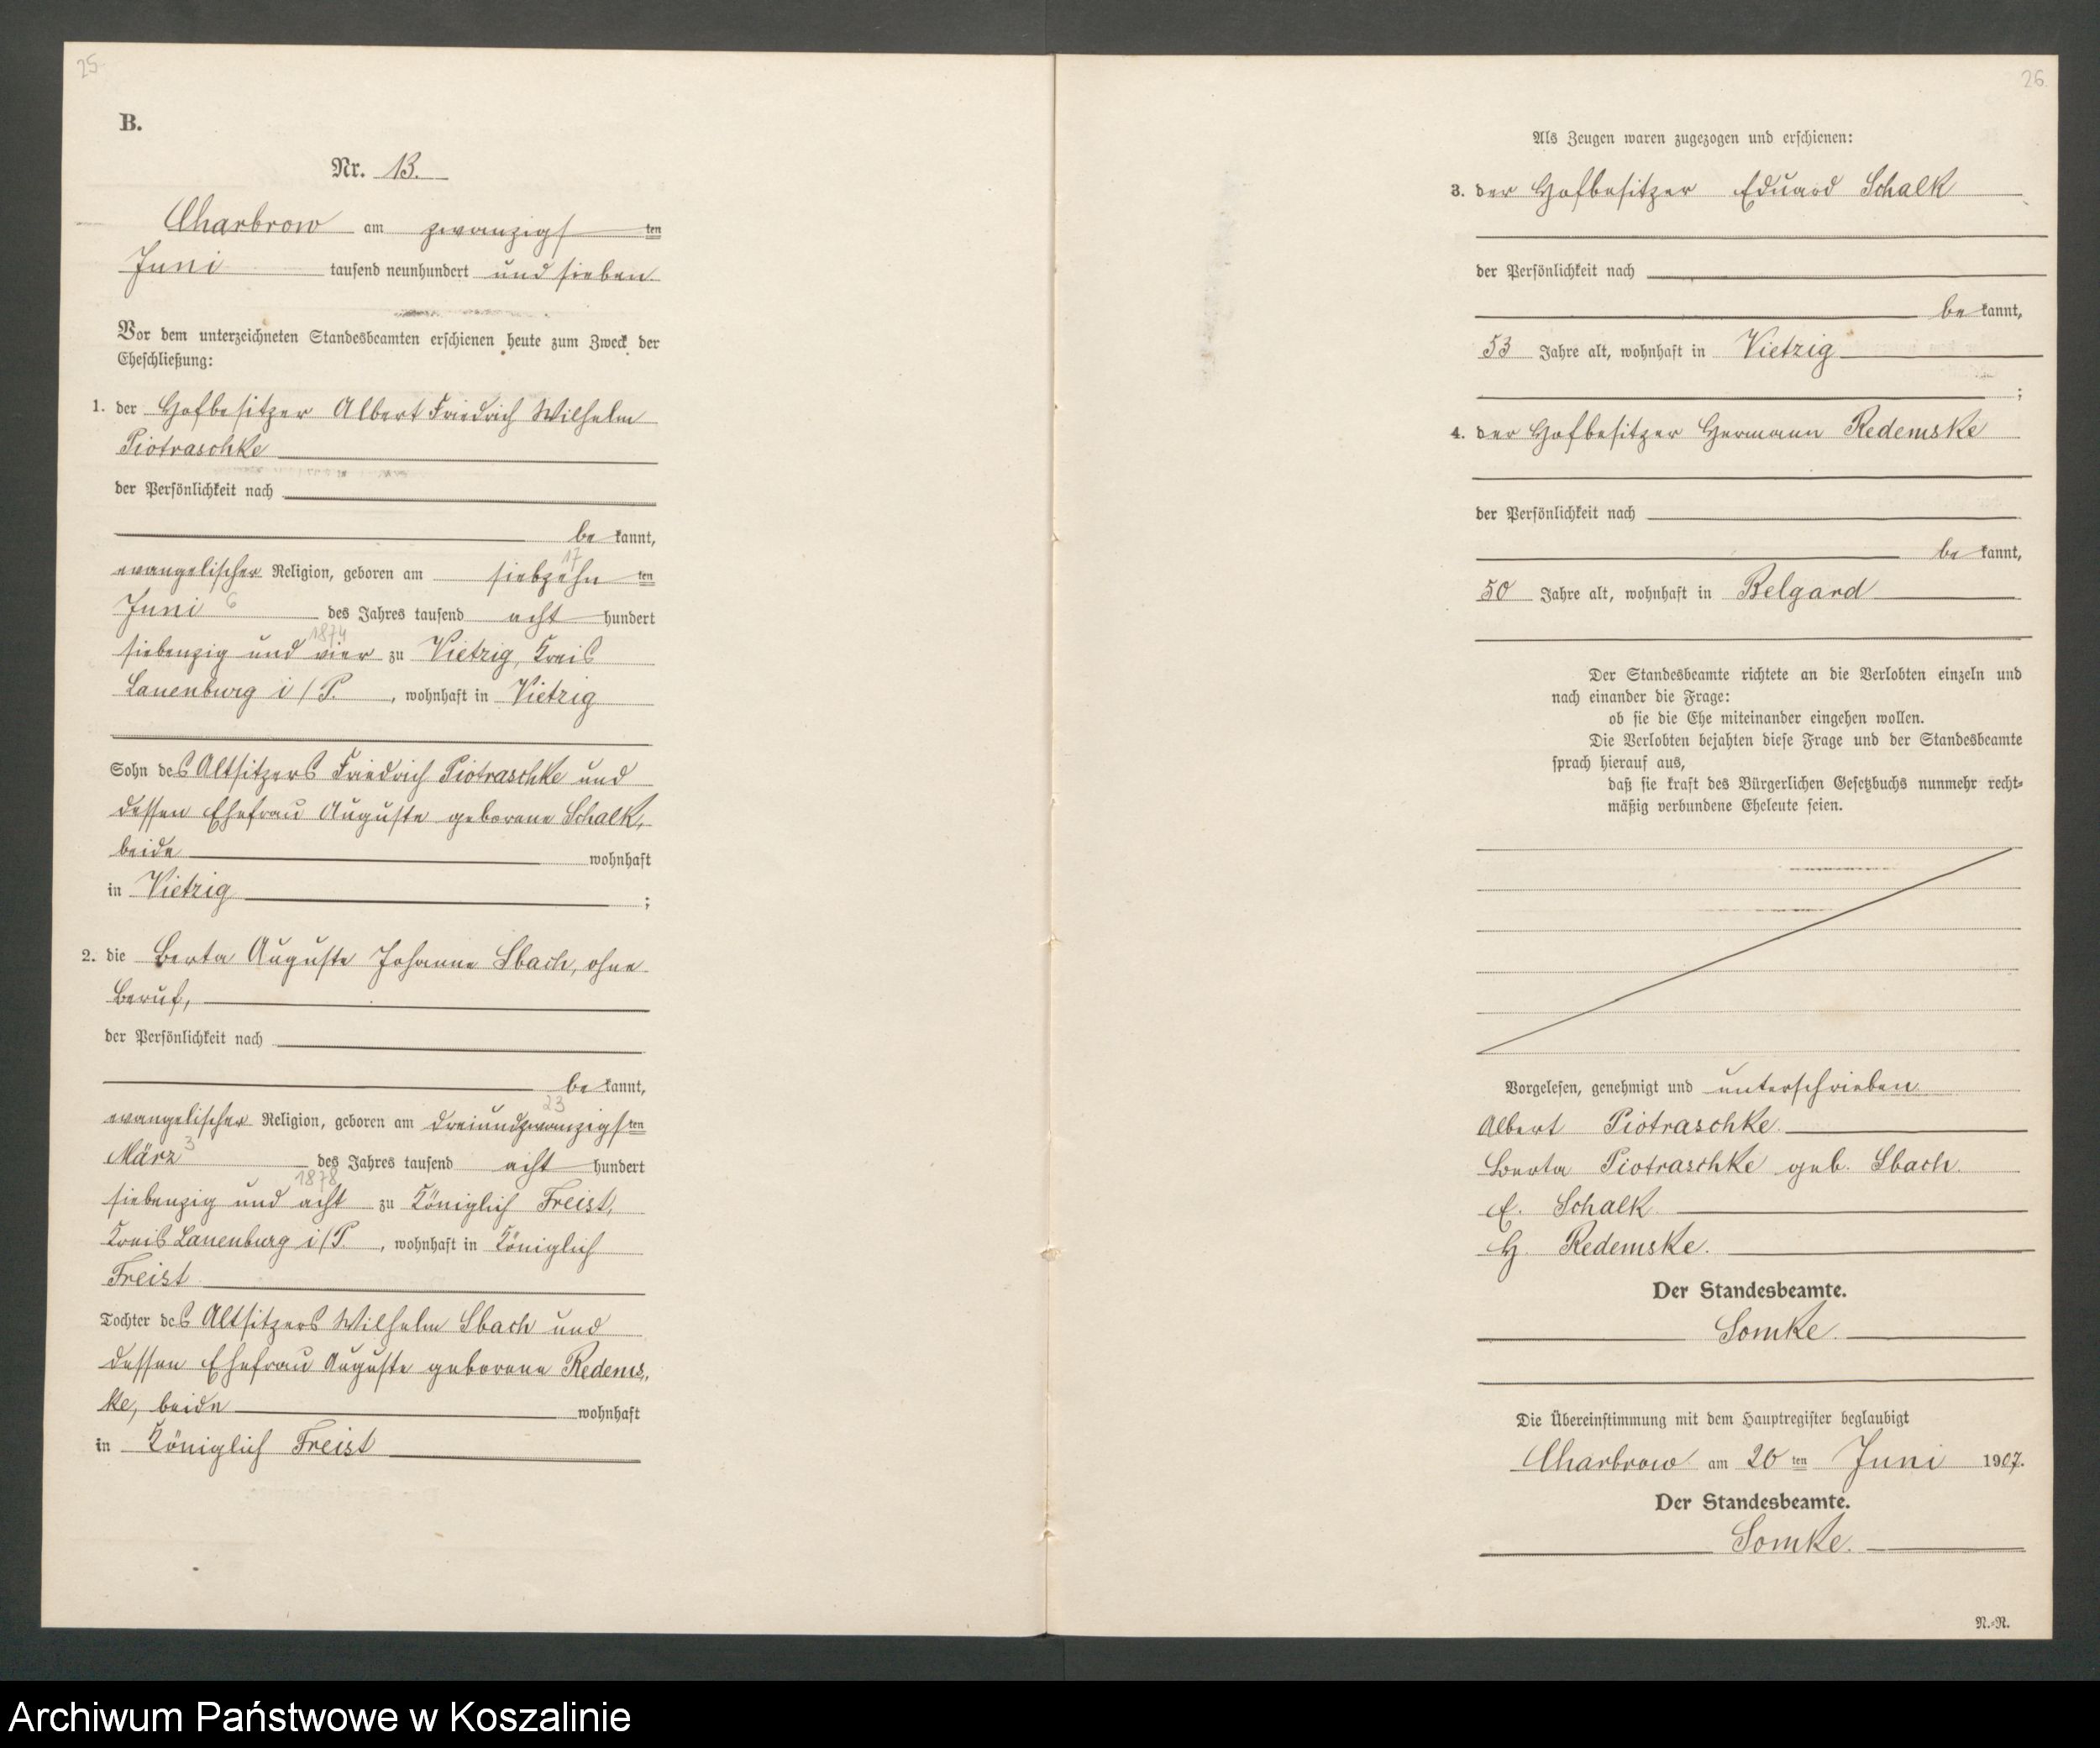 25
B.
Nr. 13.
Charbrow am zwanzigsten
Juni tausend neunhundert und sieben
Vor dem unterzeichneten Standesbeamten erschienen heute zum Zweck der
Eheschließung:
1. der Hofbesitzer Albert Friedrich Wilhelm
Piotraschke
der Persönlichkeit nach
be kannt,
evangelischer Religion, geboren am siebzehn ten
17
Juni 6 des Jahres tausend acht hundert
1874
siebenzig und vier zu Vietzig, Kreis
Lauenburg i/P., wohnhaft in Vietzig
Sohn des Altsitzers Friedrich Piotraschke und
dessen Ehefrau Auguste geborene Schalk,
beide wohnhaft
in Vietzig ;
2. die Berta Auguste Johanne Sbach, ohne
Beruf,
der Persönlichkeit nach
be kannt,
23
evangelischer Religion, geboren am dreiundzwanzigsten
März 3 des Jahres tausend acht hundert
1878
siebenzig und acht zu Königlich Freist,
Kreis Lauenburg i/P., wohnhaft in Königlich
Freist
Tochter des Altsitzers Wilhelm Sbach und
dessen Ehefrau Auguste geborene Redems„
ke, beide wohnhaft
in Königlich Freist
26
Als Zeugen waren zugezogen und erschienen:
3. der Hofbesitzer Eduard Schalk
der Persönlichkeit nach
be kannt,
53 Jahre alt, wohnhaft in Vietzig
;
4. der Hofbesitzer Hermann Redemske
der Persönlichkeit nach
be kannt,
50 Jahre alt, wohnhaft in Belgard
Der Standesbeamte richtete an die Verlobten einzeln und
nach einander die Frage:
ob sie die Ehe miteinander eingehen wollen.
Die Verlobten bejahten diese Frage und der Standesbeamte
sprach hierauf aus,
daß sie kraft des Bürgerlichen Gesetzbuchs nunmehr recht=
mäßig verbundene Eheleute seien.
Vorgelesen, genehmigt und unterschrieben
Albert Piotraschke.
Berta Piotraschke geb. Sbach.
E. Schalk.
H. Redemske.
Der Standesbeamte.
Somke.
Die Übereinstimmung mit dem Hauptregister beglaubigt
Charbrow am 20 ten Juni 1907.
Der Standesbeamte.
Somke.
N.=R.
Archiwum Państwowe w Koszalinie